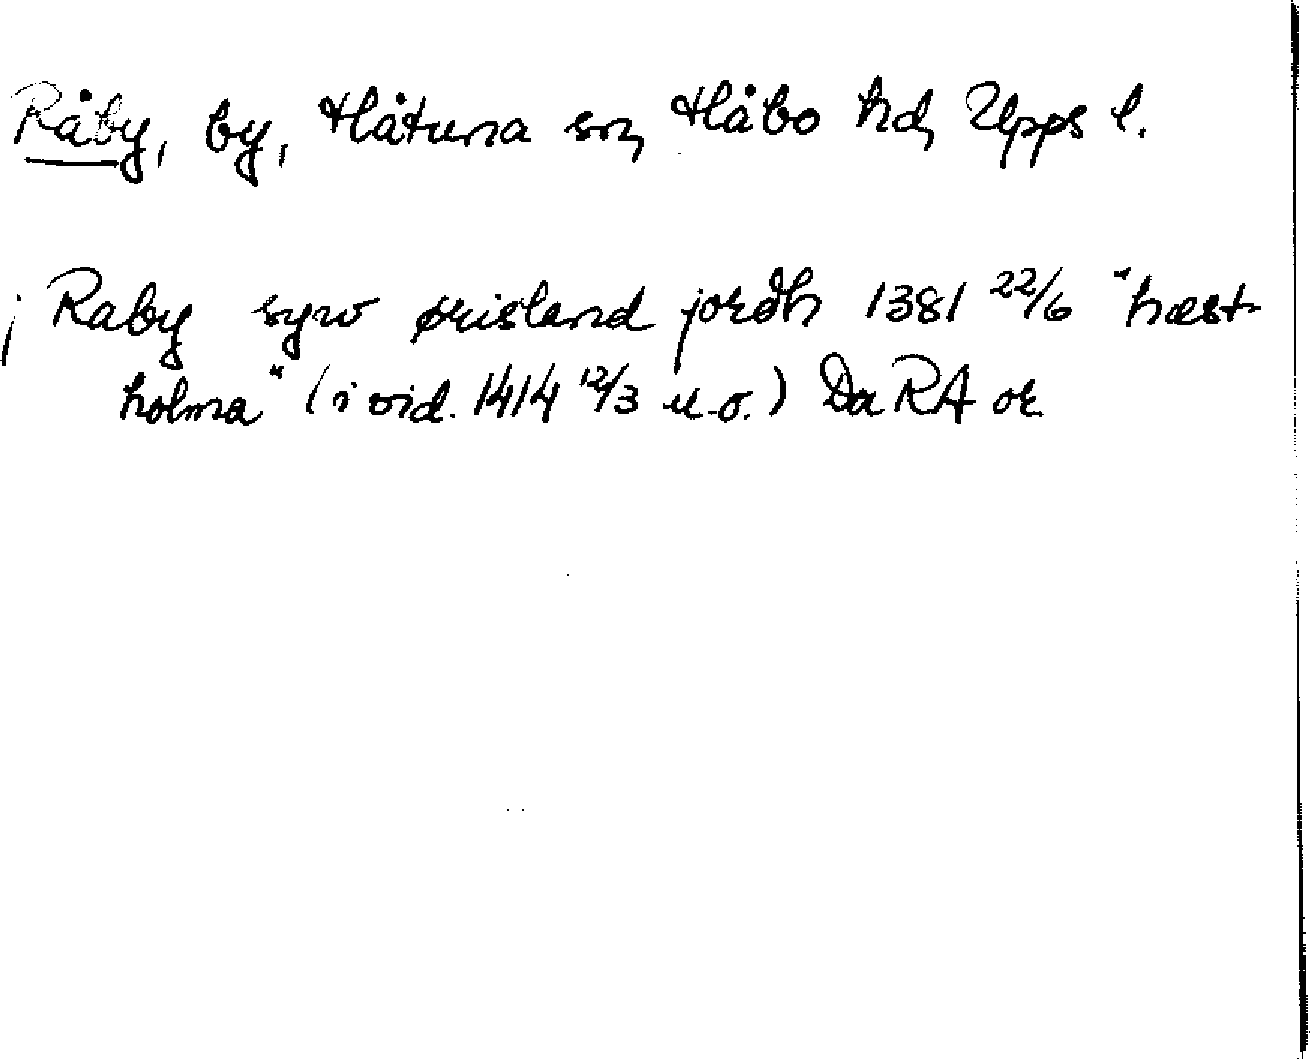 Råby, by, Håtuna sn, Håbo hd, Upps l.
j Raby syw ørisland jordh 1381 22/6 "hæst-
holma" (i vid. 1414 12/3 u.o.) Da RA or